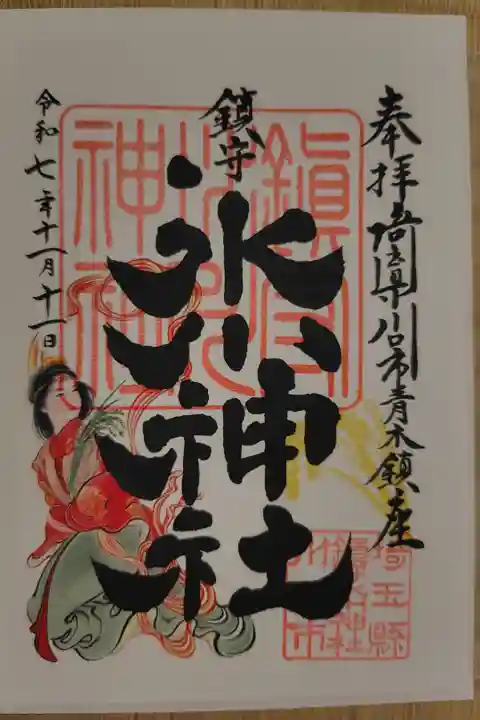 奉拝 埼玉県川口市青木鎮座
鎮守
氷川神社
令和七年十一月十一日
鎮守
氷川
神社
埼玉縣
鎮守氷川神社
川口市